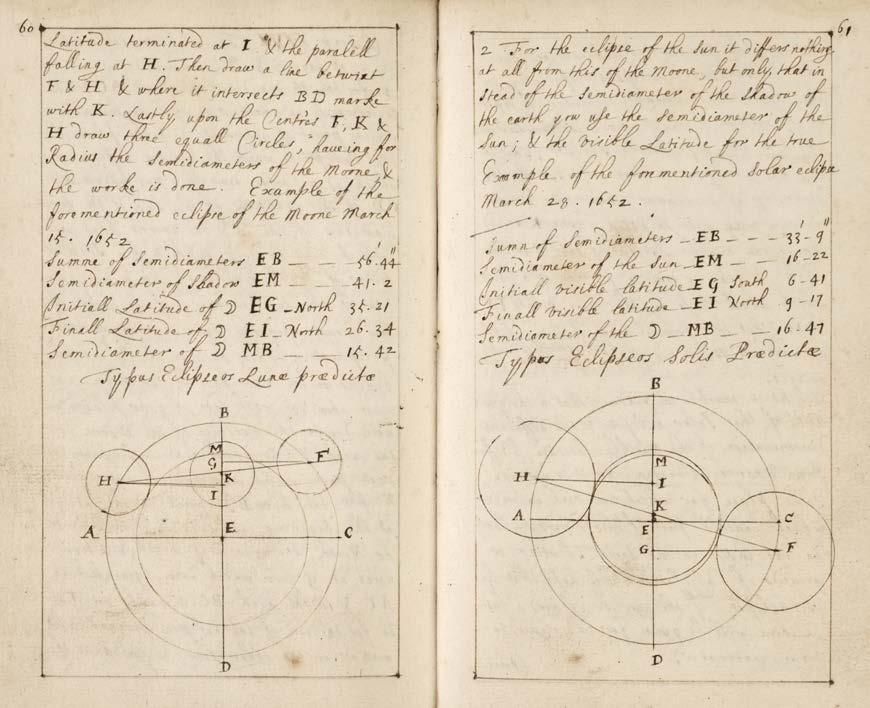 60
Latitude terminated at I & the paralell
falling at H. Then draw a line betwixt
F & H & where it intersects BD marke
with K. Lastly upon the Centres F, K &
H draw three equall Circles, haveing for
Radius the Semidiameters of the Moone, &
the worke is done. Example of the
forementioned eclipse of the Moone March
15. 1652
Summe of Semidiameters EB — — 56'. 44"
Semidiameter of Shadow EM — — 41. 2
Initiall Latitude of ☽ EG - North 35. 21
Finall Latitude of ☽ EI - North 26. 34
Semidiameter of ☽ MB — — 15. 42
Typus Eclipseos Lunæ prædictæ
B
M
G
F
H
K
I
A
E
C
D
61
2 For the eclipse of the Sun it differs nothing
at all from this of the Moone, but only, that in
stead of the Semidiameter of the shadow of
the earth you use the Semidiameter of the
Sun; & the visible Latitude for the true
Example of the forementioned Solar eclipse
March 28. 1652.
Summ of Semidiameters - EB - - - 33'- 9"
Semidiameter of the Sun - EM — — 16 - 22
Initiall visible latitude - EG South 6 - 41
Finall visible latitude - EI North 9 - 17
Semidiameter of the ☽ - MB — — 16 - 47
Typus Eclipseos Solis Prædictæ
B
M
H
I
K
A
C
E
G
F
D